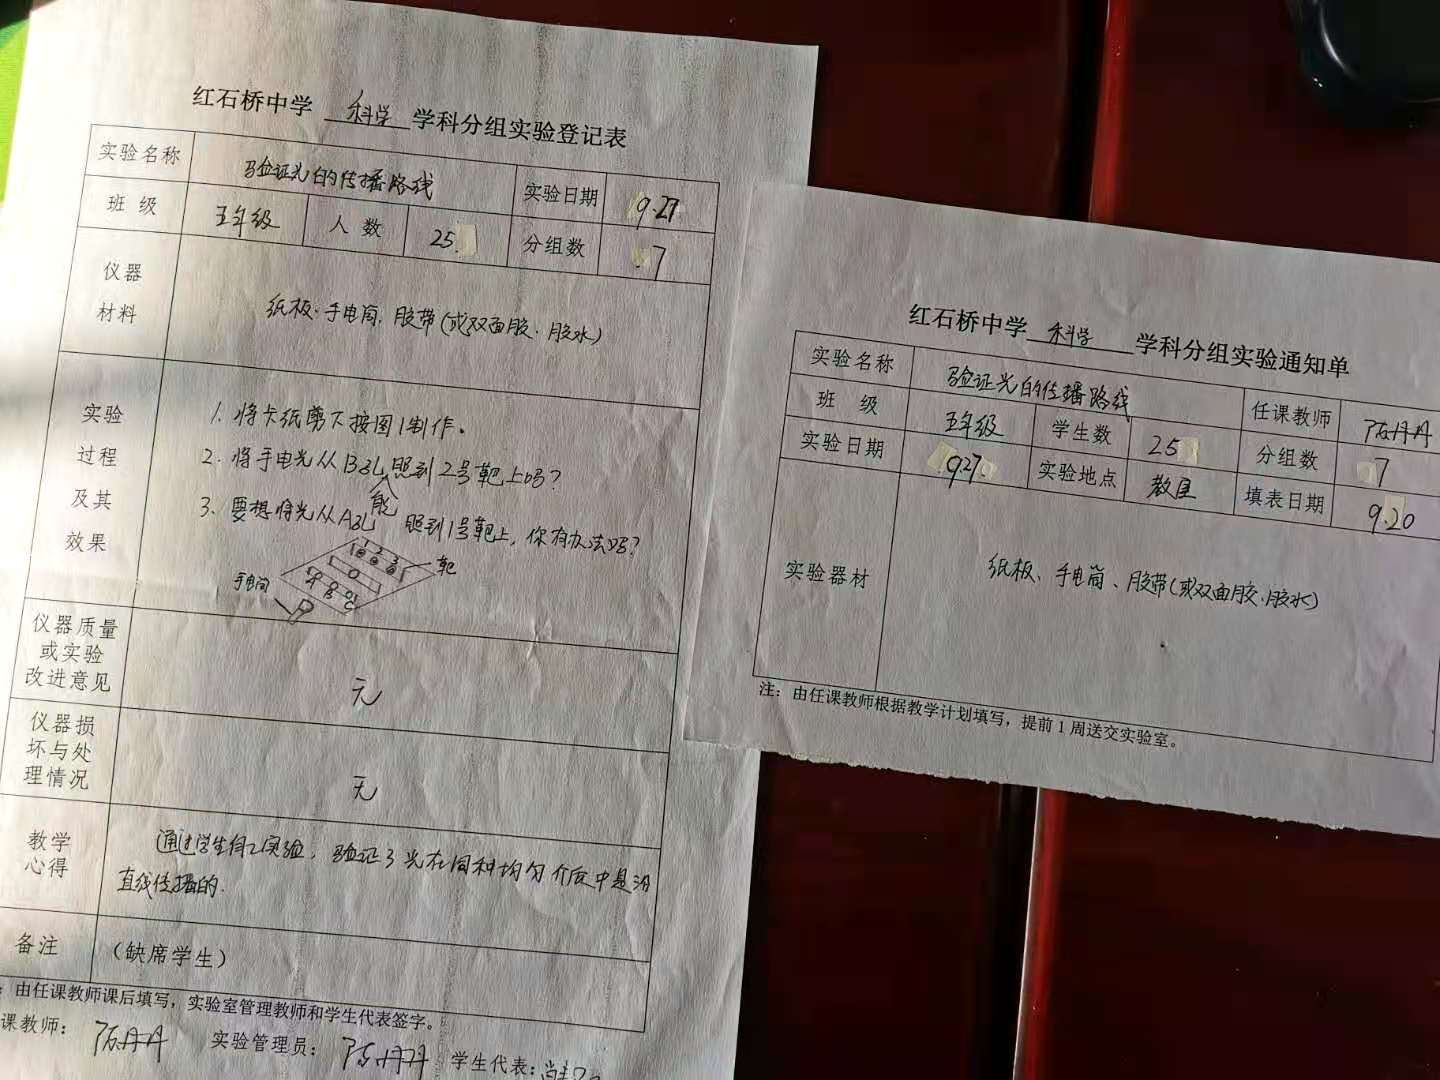 红石桥中学 科学 学科分组实验登记表
实验名称 验证光的传播路线 实验日期 9.27
班 级 五年级 人 数 25 分组数 7
仪器
材料
纸板、手电筒、胶带(或双面胶、胶水)
实验
过程
及其
效果
1. 将卡纸剪下按图1制作。
2. 将手电光从B孔能照到2号靶上吗?
3. 要想将光从A孔照到1号靶上,你有办法吗?
1 2 3
靶
手电筒
A B C
仪器质量
或实验
改进意见
无
仪器损
坏与处
理情况
无
教学
心得
通过学生自己实验,验证了光在同种均匀介质中是沿
直线传播的.
备注 (缺席学生)
:由任课教师课后填写,实验室管理教师和学生代表签字。
课教师: 陈丹丹 实验管理员: 陈丹丹 学生代表:
红石桥中学 科学 学科分组实验通知单
实验名称 验证光的传播路线 任课教师 陈丹丹
班 级 五年级 学生数 25 分组数 7
实验日期 9.27 实验地点 教室 填表日期 9.20
实验器材 纸板、手电筒、胶带(或双面胶、胶水)
注:由任课教师根据教学计划填写,提前1周送交实验室。